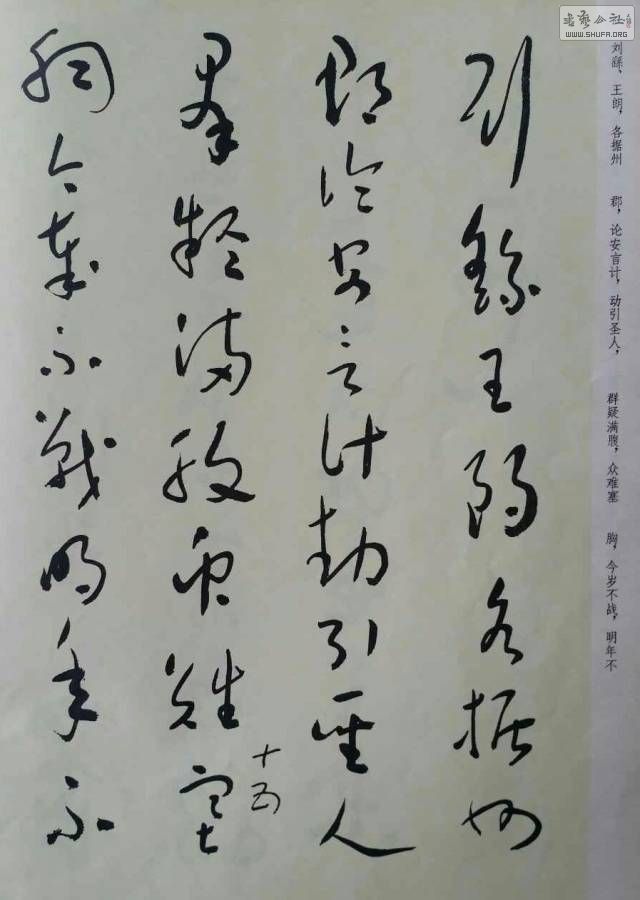 刘繇王朗各据州
郡论安言计动引圣人
群疑满腹众难塞
十五
胸今岁不战明年不
刘繇、王朗，各据州　郡，论安言计，动引圣人，　群疑满腹，众难塞　胸，今岁不战，明年不
书艺公社
WWW.SHUFA.ORG